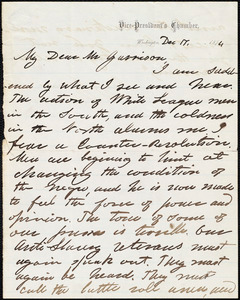 Vice-President's Chamber,
Washington, Dec 17, 1874
My Dear Mr Garrison,
I am sadd-
ened by what I see and hear.
The action of White League men
in the South, and the coldness
in the North alarms me I
fear a Counter-Revolution.
Men are beginning to hint at
changing the condition of
the Negro, and he is now made
to feel the force of power and
opinion. The tone of some of
our presses is terrible. Our
Anti-Slavery veterans must
again speak out. They must
again be heard. They must
call the battle roll anew and